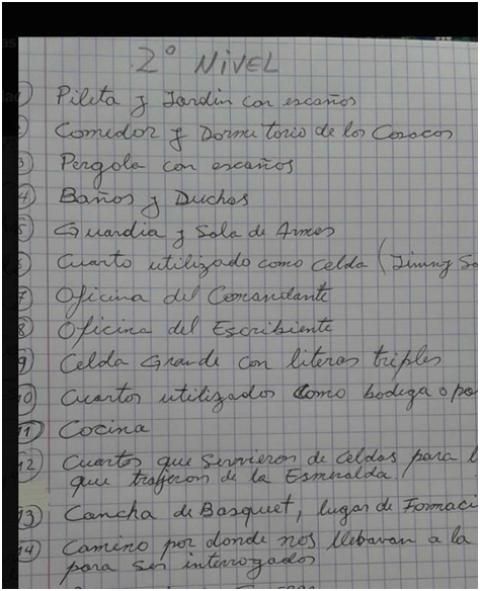 2º NIVEL
1) Pileta y Jardin con escaños
Comedor y Dormitorio de los Cosacos
3) Pergola con escaños
4) Baños y Duchas
5) Guardia y Sala de Armas
6) Cuarto utilizado como celda (Jimmy
7) Oficina del Comandante
8) Oficina del Escribiente
9) Celda Grande con literas triples
10) Cuartos utilizados como bodega o
11) Cocina
12) Cuartos que servieron de celdas para
que trajeron de la Esmeralda.
13) Cancha de Basquet, lugar de Formaci
14) Camino por donde nos llebavan a la
para ser interrogados